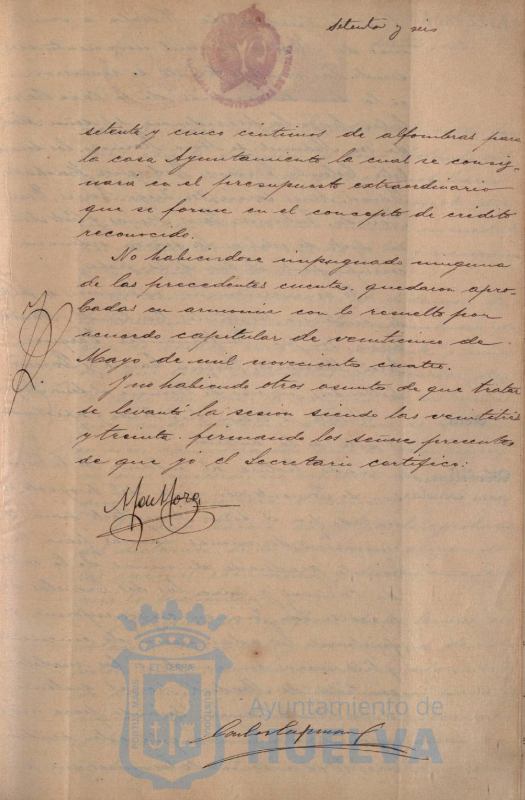 setenta y seis
setenta y cinco céntimos de alfombras para
la casa Ayuntamiento la cual se consig-
nará en el presupuesto extraordinario
que se forme en el concepto de crédito
reconocido.
No habiéndose impugnado ninguna
de las precedentes cuentas quedaron apro-
badas en armonía con lo resuelto por
acuerdo capitular de veinticinco de
Mayo de mil novecientos cuatro.
Y no habiendo otros asuntos de que tratar
se levantó la sesión siendo las veintitrés
y treinta firmando los señores presentes
de que yo el Secretario certifico:
Ayuntamiento de
HUELVA
PORTUS MARIS
ET TERRÆ
CUSTODIA